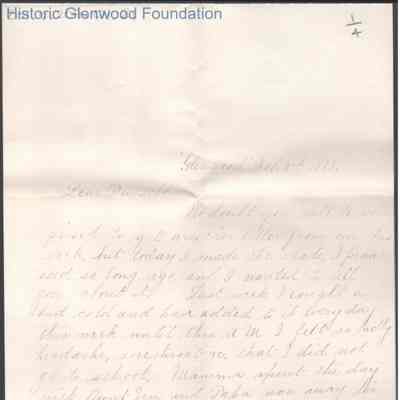 Historic Glenwood Foundation
1/4
Glenwood
No doubt you will be sur-
prised to get another letter from me this
week, but today I made the I prom-
ised so long ago and I wanted to tell
you about it. Last week I caught a
bad cold and have added to it everyday
this week until this A.M. I felt so badly
headache, sore throat &c that I did not
go to school, Mamma spent the day
with Aunt and Papa was away